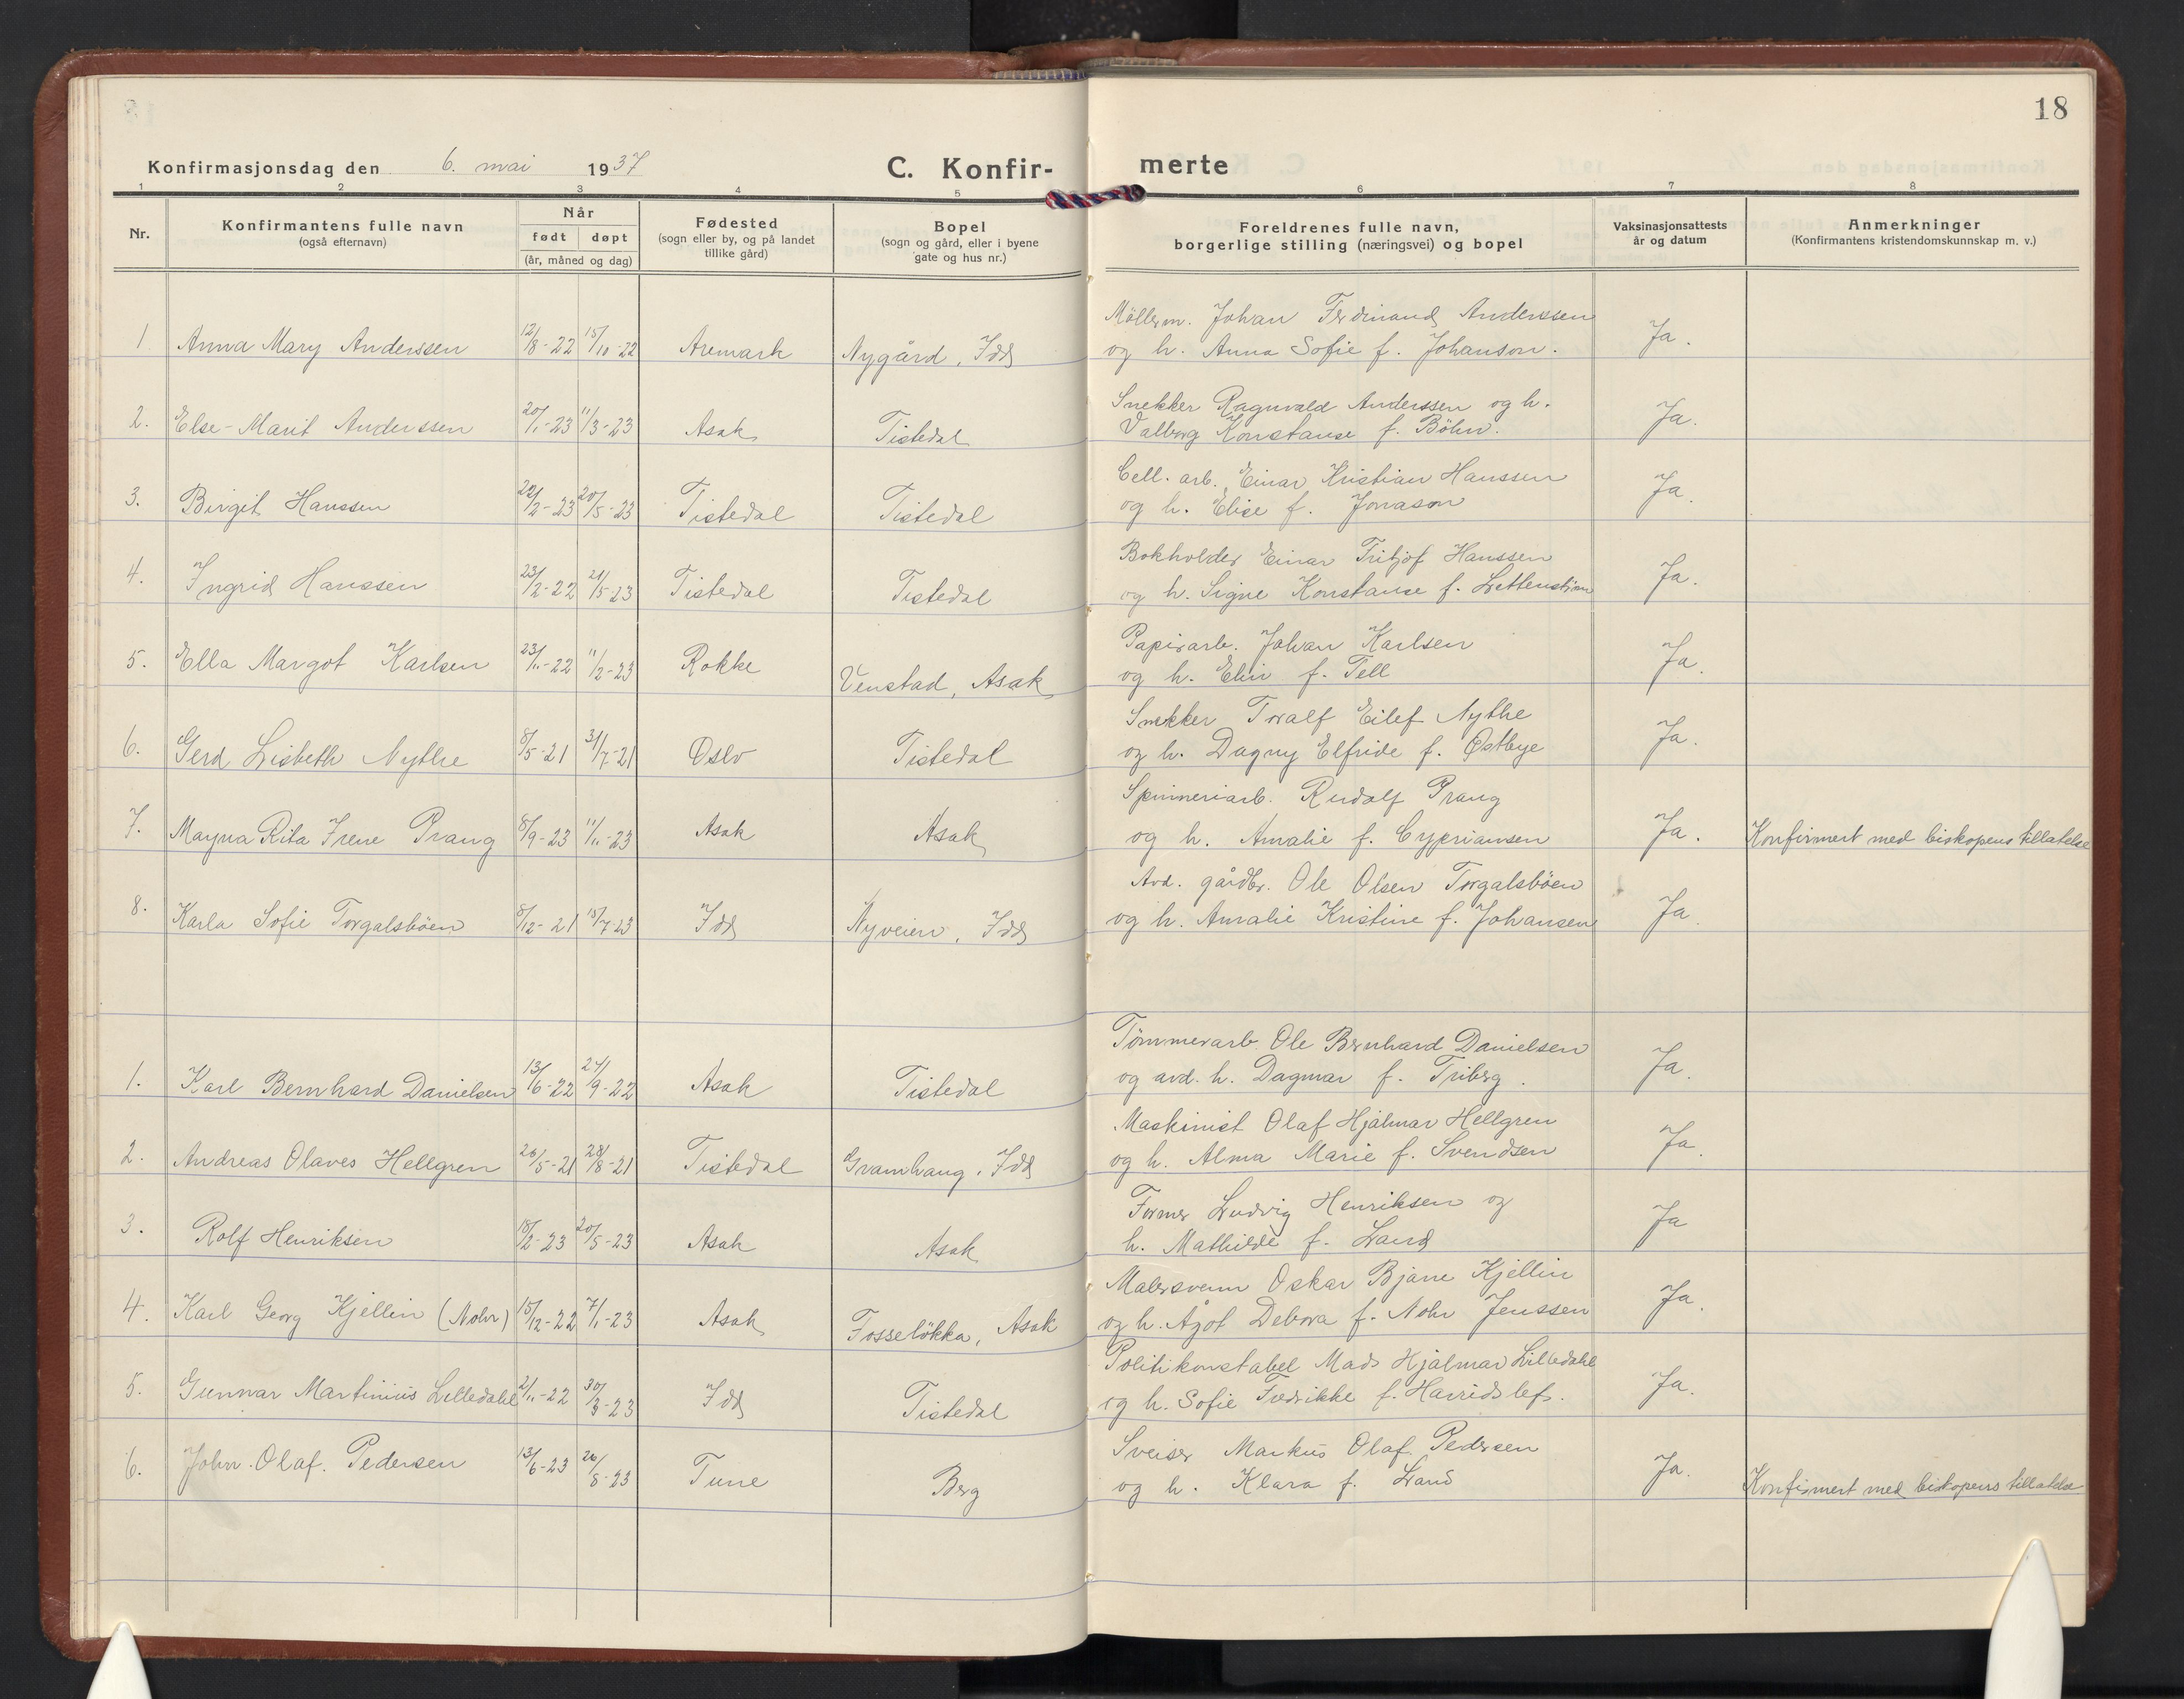 18
Konfirmasjonsdag den 6. mai 1937
C. Konfir-
merte
1 2 3 4 5 6 7 8
Nr.
Konfirmantens fulle navn
(også efternavn)
Når
født døpt
(år, måned og dag)
Fødested
(sogn eller by, og på landet
tillike gård)
Bopel
(sogn og gård, eller i byene
gate og hus nr.)
Foreldrenes fulle navn,
borgerlige stilling (næringsvei) og bopel
Vaksinasjonsattests
år og datum
Anmerkninger
(Konfirmantens kristendomskunnskap m. v.)
Møllerm. Johan Ferdinand Anderssen
1 Anna Mary Anderssen 12/8-22 15/10-22 Aremark Nygård, Idd og h. Anna Sofie f. Johanson. Ja.
Snekker Ragnvald Anderssen og h.
2. Else-Marit Anderssen 20/1-23 11/3-23 Asak Tistedal Valborg Konstanse f. Böhn. Ja.
Cell. arb. Einar Kristian Hanssen
3. Birgit Hanssen 22/2-23 20/5-23 Tistedal Tistedal og h. Elise f. Jonason Ja.
Bokholder Einar Fritjof Hanssen
4. Ingrid Hanssen 23/12-22 21/5-23 Tistedal Tistedal og h. Signe Konstanse f. Ja.
Papirarb. Johan Karlsen
5. Ella Margot Karlsen 23/11-22 11/2-23 Rokke Venstad, Asak og h. Elin f. Tell Ja.
Snekker Toralf Eilef Nythe
6. Gerd Lisbeth Nythe 8/5-21 31/7-21 Oslo Tistedal og h. Dagny Elfride f. Østbye Ja.
Spinneriarb. Rudolf Prang
7. Mayna Rita Irene Prang 8/9-23 11/11-23 Asak Asak og h. Amalie f. Cypriansen Ja. Konfirmert med biskopens tillatelse
Avd. gårdbr. Ole Olsen Torgalsböen
8. Karla Sofie Torgalsböen 8/12-21 15/7-23 Idd Nyveien, Idd og h. Amalie Kristine f. Johansen Ja
Tömmerarb. Ole Bernhard Danielsen
1. Karl Bernhard Danielsen 13/6-22 24/9-22 Asak Tistedal og avd. h. Dagmar f. Friberg. Ja.
Maskinist Olaf Hjalmar Hellgren
2. Andreas Olaves Hellgren 26/5-21 28/8-21 Tistedal Gramhaug, Idd og h. Alma Marie f. Svendsen Ja.
Former Ludvig Henriksen og
3. Rolf Henriksen 18/2-23 20/5-23 Asak Asak h. Mathilde f. Land Ja
Malersvenn Oskar Bjarne Kjellin
4. Karl Georg Kjellin (Nohr) 15/12-22 7/1-23 Asak Fosselökka, Asak og h. Ågot Debora f. Nohr Jenssen Ja.
Politikonstabel Mads Hjalmar Lilledahl
5. Gunnar Martinius Lilledahl 2/11-22 30/3-23 Idd Tistedal og h. Sofie Fredrikke f. Harridslef. Ja.
Sveiser Markus Olaf Pedersen
6. John Olaf. Pedersen 13/6-23 26/8-23 Tune Berg og h. Klara f. Land Ja. Konfirmert med biskopens tillatelse